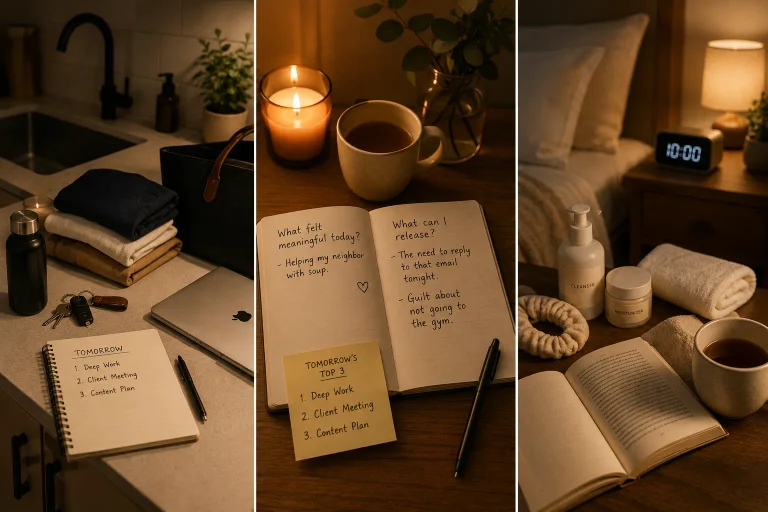 TOMORROW
1. Deep Work
2. Client Meeting
3. Content Plan
What felt
meaningful today?
- Helping my neighbor
with soup.
What can I
release?
- The need to reply
to that email
tonight.
- Guilt about
not going to
the gym.
TOMORROW'S
TOP 3
1. Deep Work
2. Client Meeting
3. Content Plan
10:00
CLEANSER
MOISTURIZER